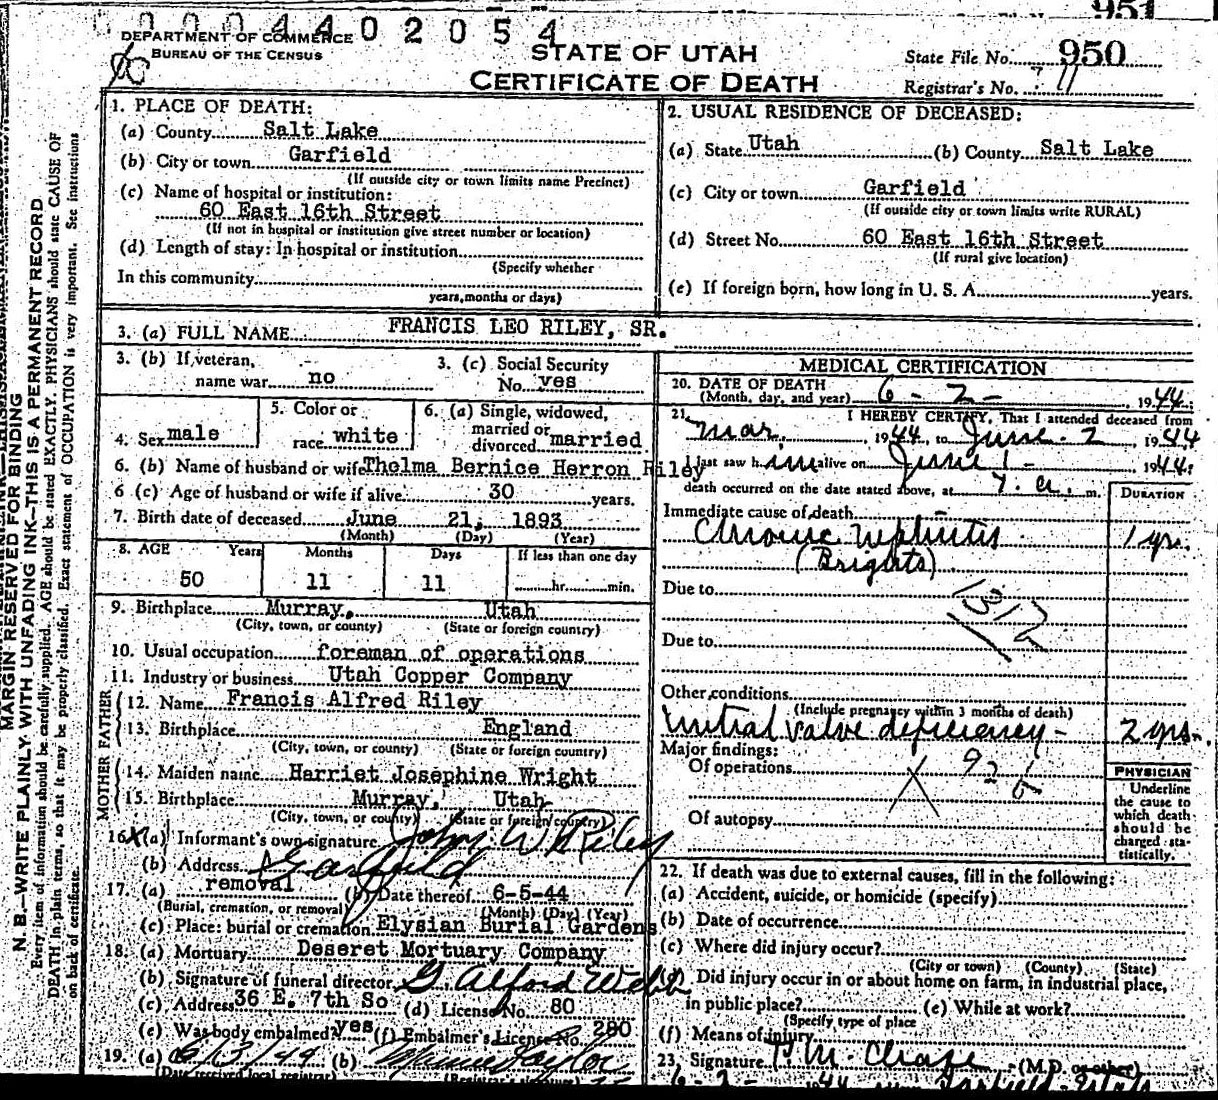 951
0004402054
DEPARTMENT OF COMMERCE
BUREAU OF THE CENSUS
STATE OF UTAH
CERTIFICATE OF DEATH
State File No. 950
Registrar's No. 11
MARGIN RESERVED FOR BINDING
N. B.—WRITE PLAINLY, WITH UNFADING INK—THIS IS A PERMANENT RECORD
Every item of information should be carefully supplied. AGE should be stated EXACTLY. PHYSICIANS should state CAUSE OF
DEATH in plain terms, so that it may be properly classified. Exact statement of OCCUPATION is very important. See instructions
on back of certificate.
1. PLACE OF DEATH:
(a) County Salt Lake
(b) City or town Garfield
(If outside city or town limits name Precinct)
(c) Name of hospital or institution:
60 East 16th Street
(If not in hospital or institution give street number or location)
(d) Length of stay: In hospital or institution
(Specify whether
In this community
years, months or days)
2. USUAL RESIDENCE OF DECEASED:
(a) State Utah (b) County Salt Lake
(c) City or town Garfield
(If outside city or town limits write RURAL)
(d) Street No. 60 East 16th Street
(If rural give location)
(e) If foreign born, how long in U. S. A. years.
3. (a) FULL NAME FRANCIS LEO RILEY, SR.
3. (b) If veteran, name war no
3. (c) Social Security No. yes
4. Sex male
5. Color or race white
6. (a) Single, widowed, married or divorced married
6. (b) Name of husband or wife Thelma Bernice Herron Riley
6 (c) Age of husband or wife if alive 30 years.
7. Birth date of deceased June 21, 1893
(Month) (Day) (Year)
8. AGE Years Months Days If less than one day
50 11 11 hr. min.
9. Birthplace Murray, Utah
(City, town, or county) (State or foreign country)
10. Usual occupation foreman of operations
11. Industry or business Utah Copper Company
FATHER
12. Name Francis Alfred Riley
13. Birthplace England
(City, town, or county) (State or foreign country)
MOTHER
14. Maiden name Harriet Josephine Wright
15. Birthplace Murray, Utah
(City, town, or county) (State or foreign country)
16. (a) Informant's own signature John W Riley
(b) Address Garfield
17. (a) removal (b) Date thereof 6-5-44
(Burial, cremation, or removal) (Month) (Day) (Year)
(c) Place: burial or cremation Elysian Burial Gardens
18. (a) Mortuary Deseret Mortuary Company
(b) Signature of funeral director G. Alford Webb
(c) Address 36 E. 7th So (d) License No. 80
(e) Was body embalmed? yes (f) Embalmer's License No. 280
19. (a) 6/3/44 (b)
(Date received local registrar) (Registrar's signature)
MEDICAL CERTIFICATION
20. DATE OF DEATH
(Month, day, and year) 6 - 2 - 1944
21. I HEREBY CERTIFY, That I attended deceased from
Mar. 1944, to June 2, 1944
I last saw him alive on June 1 - 1944
death occurred on the date stated above, at 7. a. m.
DURATION
Immediate cause of death
Chronic nephritis 1 yr.
(Brights)
Due to
Due to
Other conditions
(Include pregnancy within 3 months of death)
Mitral valve deficiency - 2 yrs.
Major findings:
Of operations
Of autopsy
PHYSICIAN
Underline
the cause to
which death
should be
charged sta-
tistically.
22. If death was due to external causes, fill in the following:
(a) Accident, suicide, or homicide (specify)
(b) Date of occurrence
(c) Where did injury occur?
(City or town) (County) (State)
(d) Did injury occur in or about home on farm, in industrial place,
in public place? (e) While at work?
(Specify type of place
(f) Means of injury
23. Signature P. M. Chase (M.D. or other)